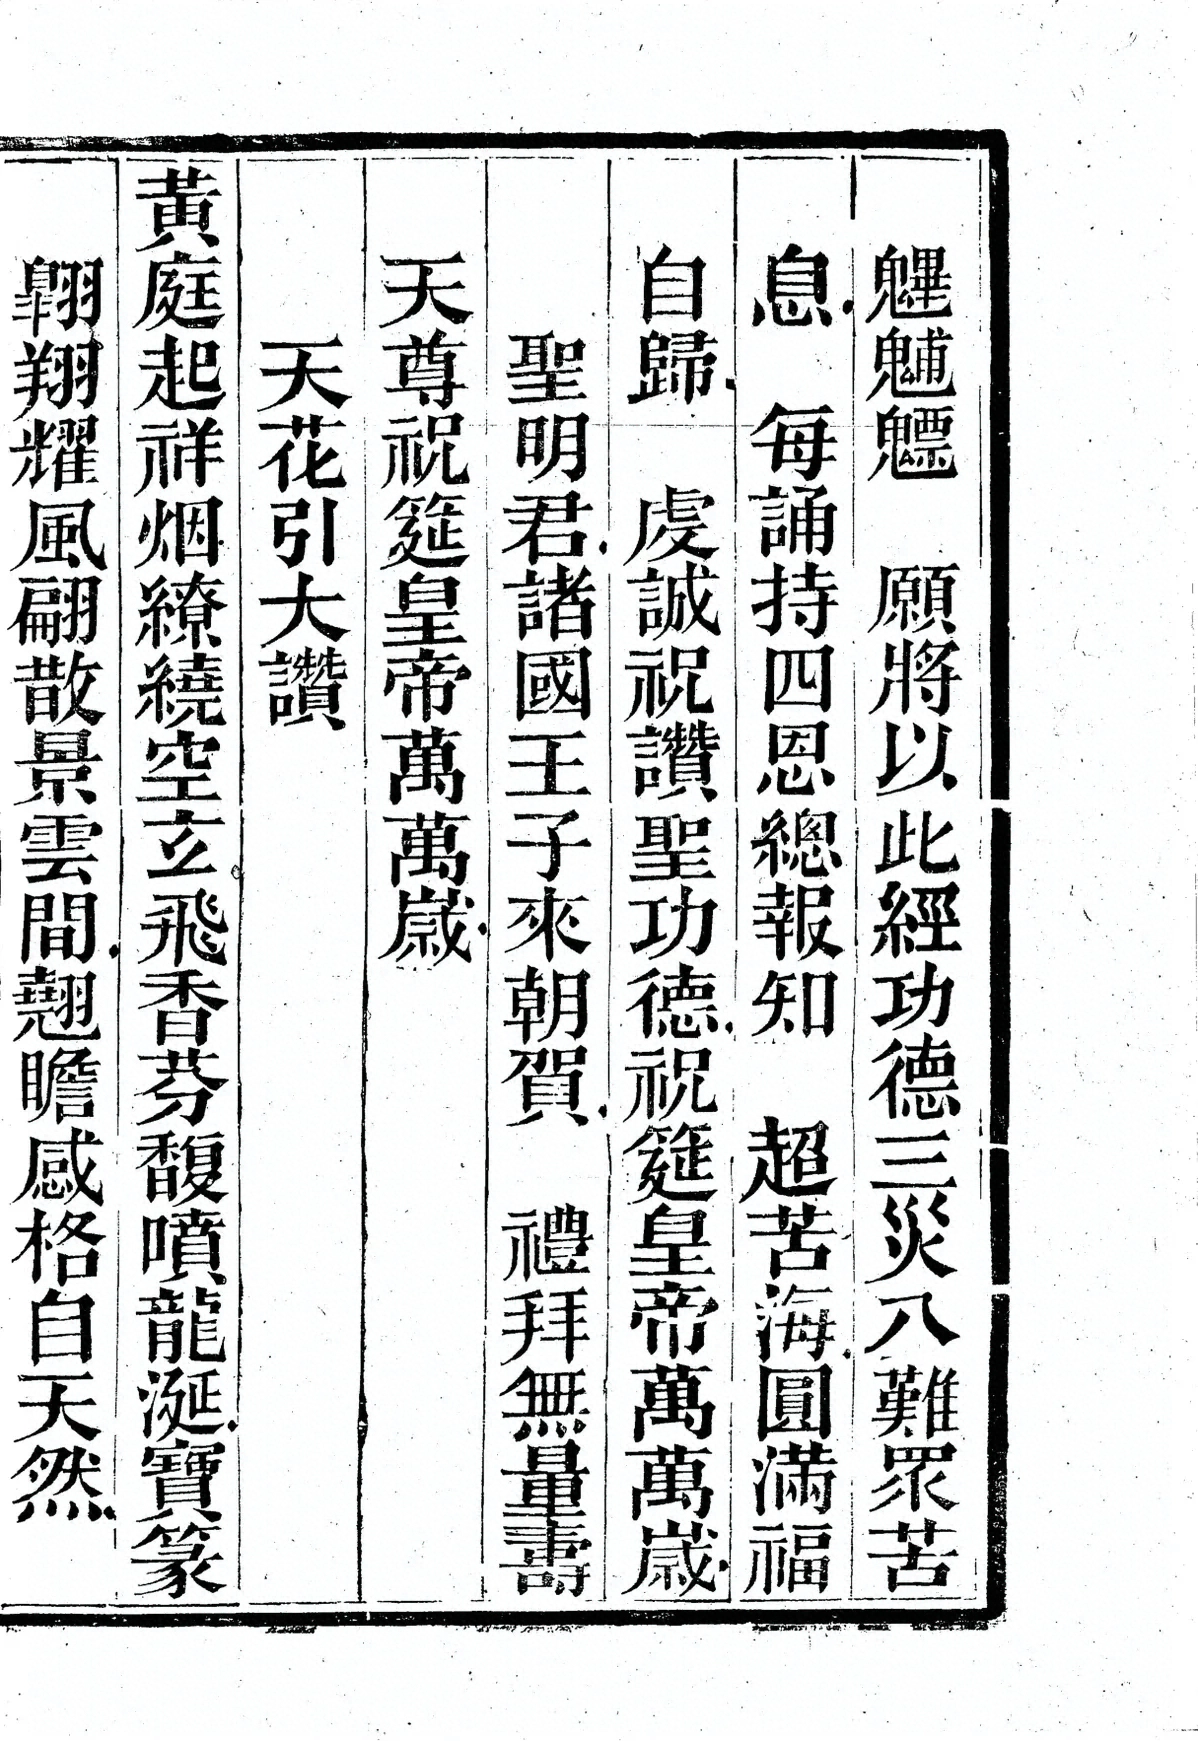 魓𩳐魒 願將以此經功德三災八難眾苦
息、 每誦持四恩總報知 超苦海、圓滿福
自歸、 虔誠祝讚聖功德、祝筵皇帝萬萬歲、
聖明君、諸國王子來朝賀、 禮拜無量壽
天尊祝筵皇帝萬萬歲、
天花引大讚
黃庭起祥烟繚繞空立飛香芬馥噴龍涎、寶篆
翺翔耀風翩散景雲間、翹瞻感格自天然、